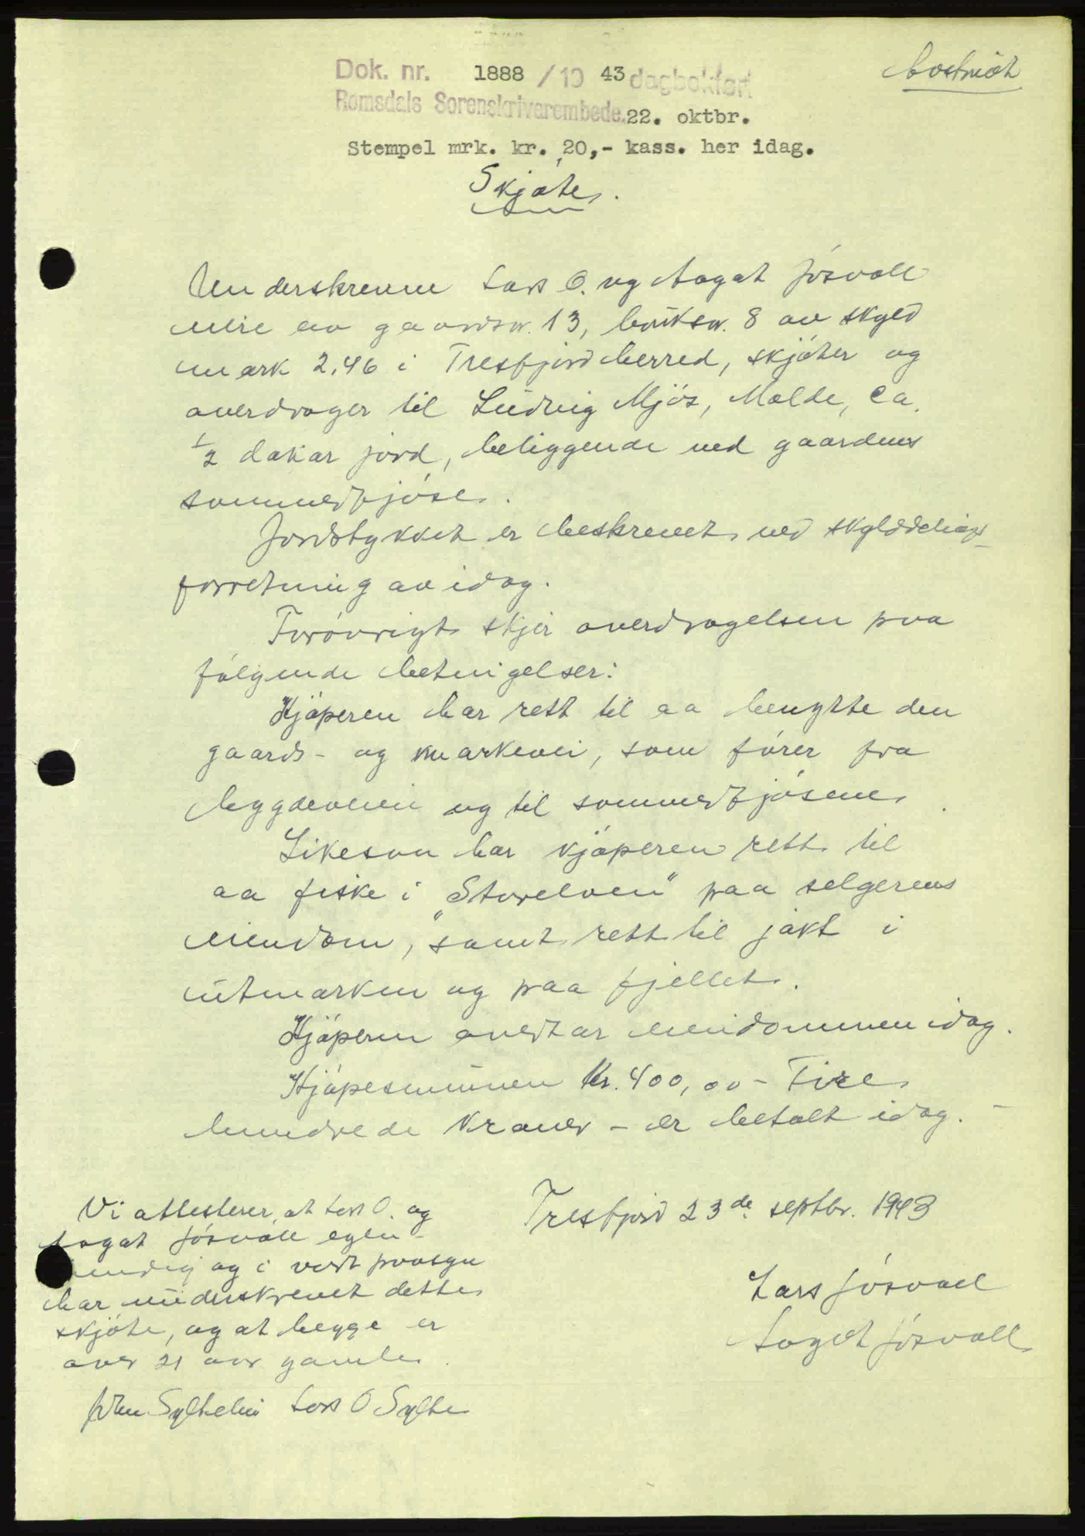 Dok. nr. 1888 / 19 43 dagbokført
Romsdals Sorenskriverembede. 22. oktbr.
Stempel mrk. kr. 20,- kass. her idag.
Skjöte.
Underskrevne Lars O. og Aagat Jösvoll
eiere av gaardsnr. 13, bruksnr. 8 av skyld
mark 2.46 i Tresfjord herred, skjöter og
overdrager til Ludvig Mjös, Molde, ca.
1/2 dekar jord, beliggende ved gaardens
sommerfjöse.
Jordstykket er beskrevet ved skylddelings-
forretning av idag.
Forövrigt skjer overdragelsen paa
fölgende betingelser:
Kjöperen har rett til aa benytte den
gaards- og markevei, som förer fra
bygdeveien og til sommerfjösene.
Likesom har kjöperen rett til
aa fiske i "Storelven" paa selgerens
eiendom, samt rett til jakt i
utmarken og paa fjellet.
Kjöperen overtar eiendommen idag.
Kjöpesummen Kr. 400,00 - Fire
hundrede kroner - er betalt idag. -
Tresfjord 23de septbr. 1943
Lars Jösvoll
Aagot Jösvoll
Vi attesterer, at Lars O. og
Aagat Jösvoll egen-
hendig og i vort paasyn
har underskrevet dette
skjöte, og at begge er
over 21 aar gamle.
John Syltebö Lars O Sylte